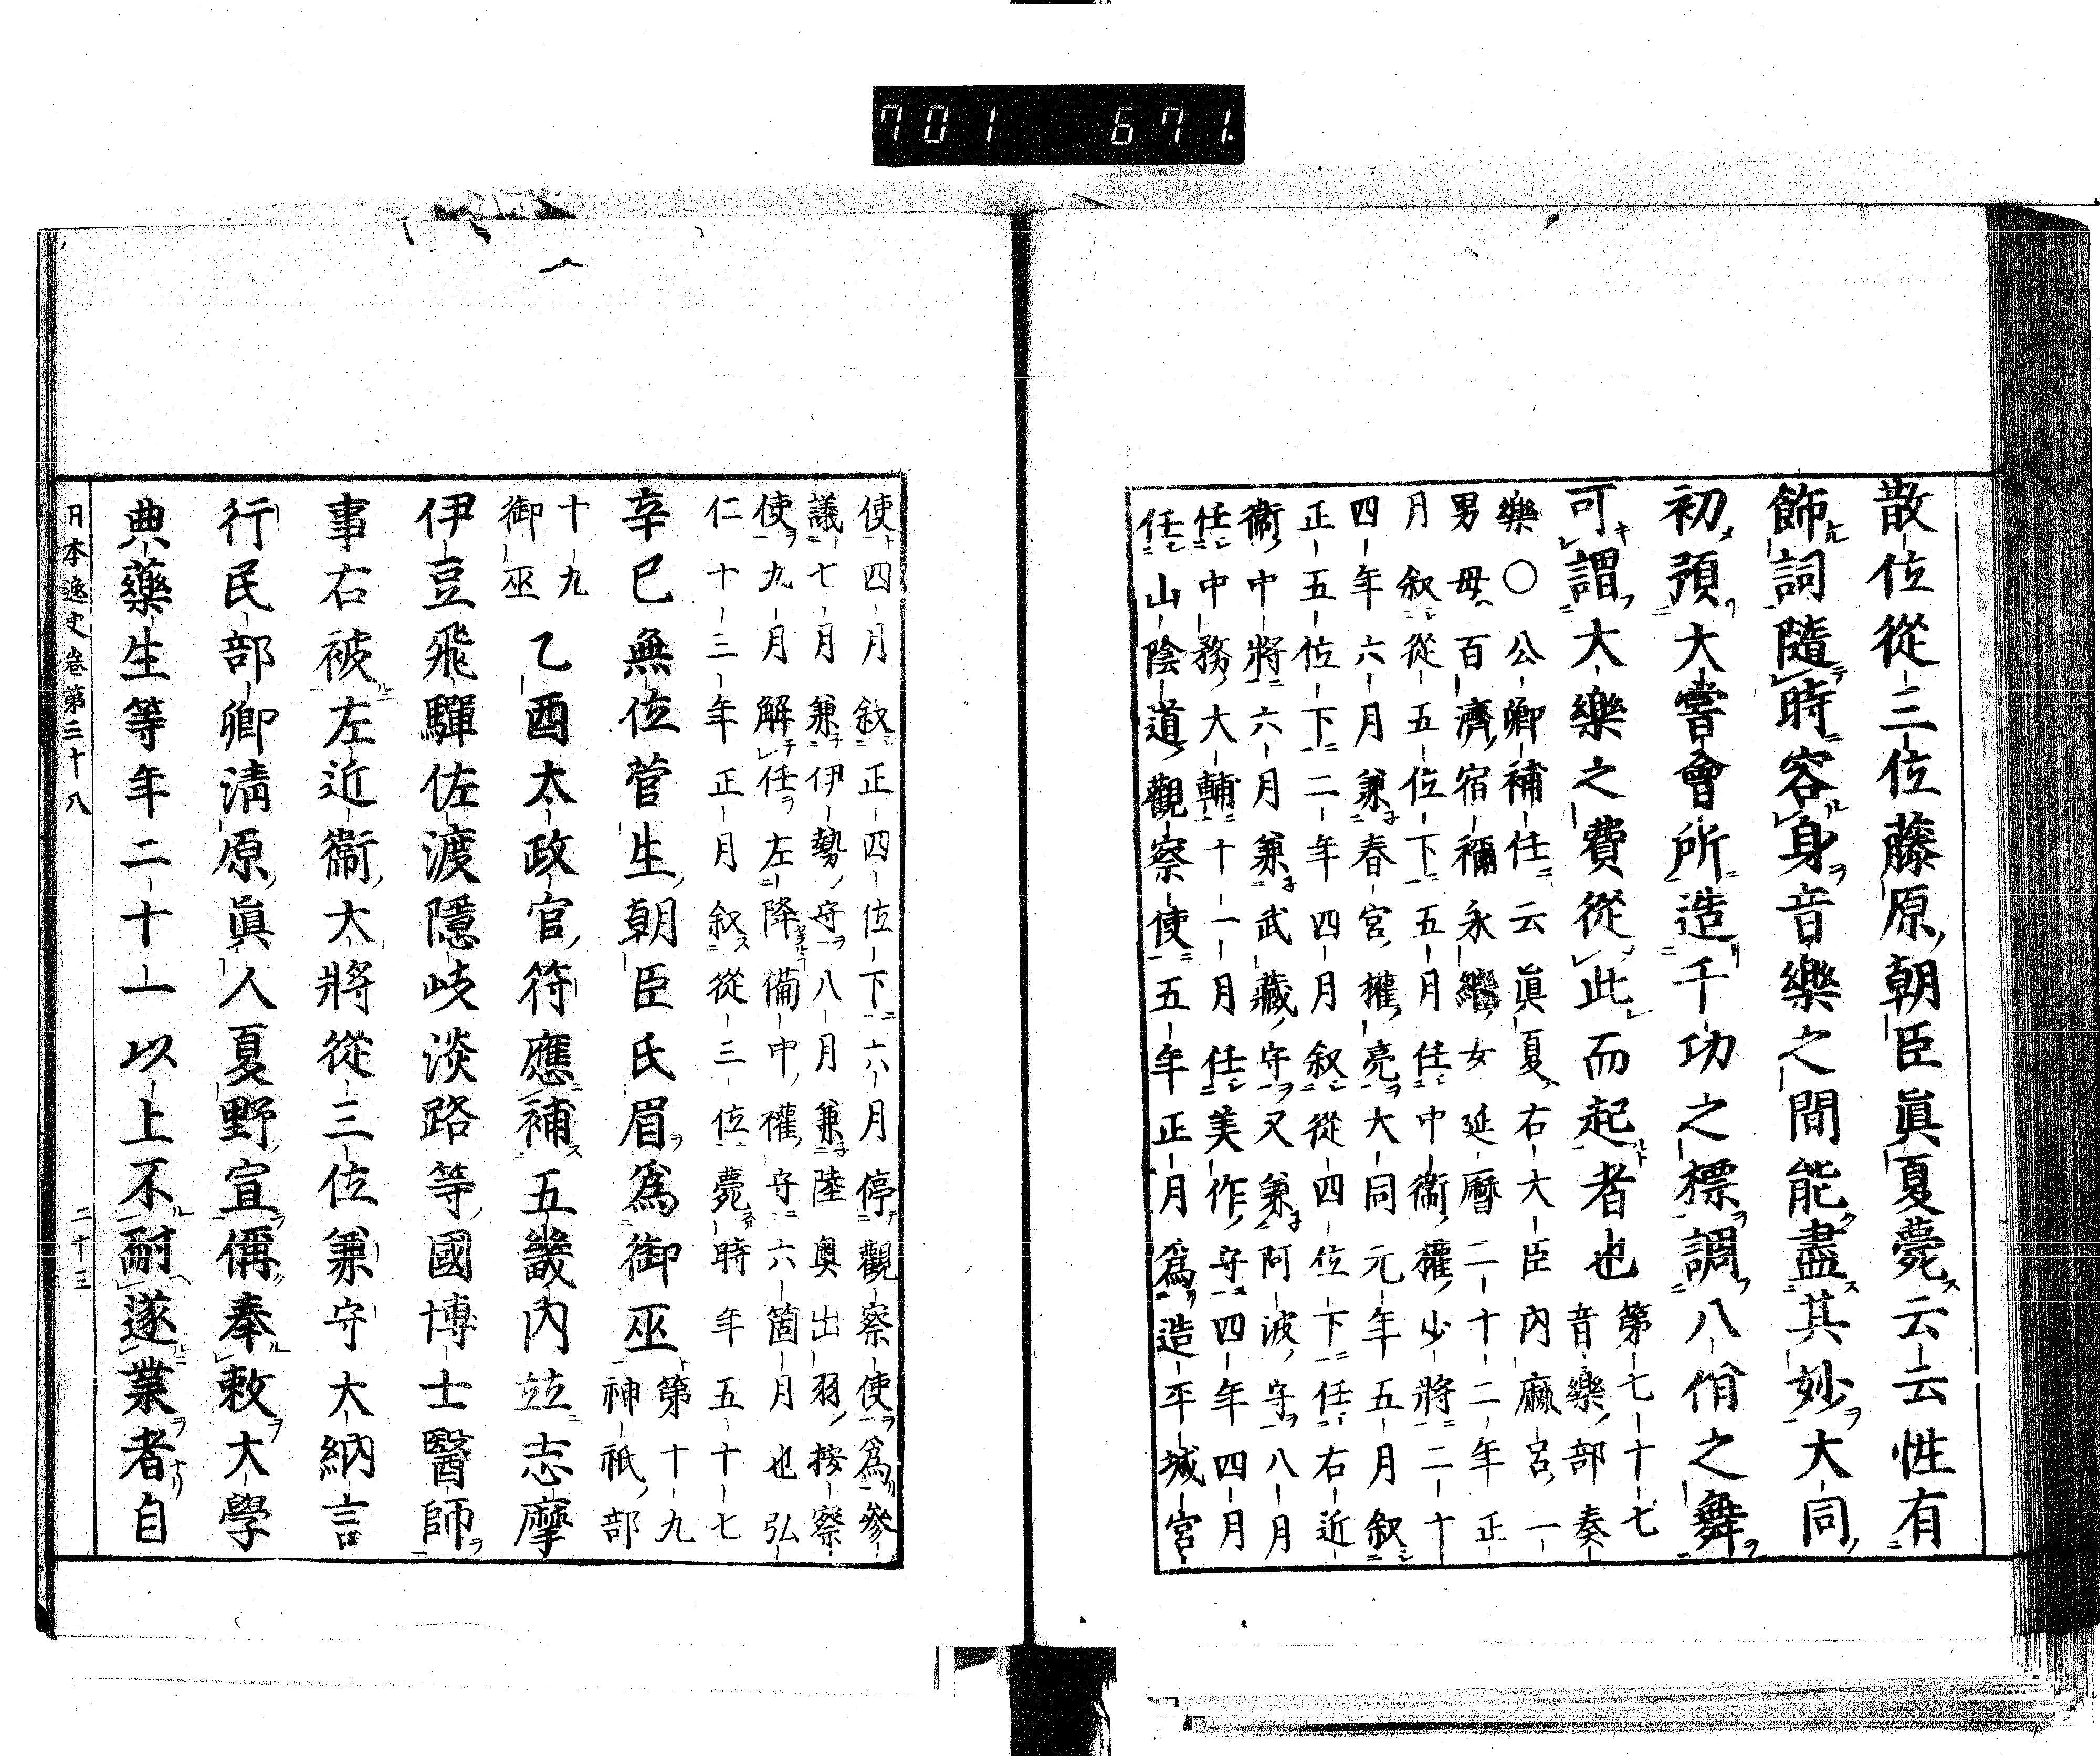 701 671.
散位從三位藤原朝臣眞夏薨云云性有
飾詞隨時容身音樂之間能盡其妙大同
初預大嘗會所造千功之標調八佾之舞
可謂大樂之費從此而起者也
第七十七
音樂部奏
樂○公卿補任云眞夏右大臣內麻呂一
男母百濟宿禰永繼女延曆二十二年正
月叙從五位下五月任中衞權少將二十
四年六月兼春宮權亮大同元年五月叙
正五位下二年四月叙從四位下任右近
衞中將六月兼武藏守又兼阿波守八月
任中務大輔十一月任美作守四年四月
任山陰道觀察使五年正月爲造平城宮
使四月叙正四位下六月停觀察使爲參
議七月兼伊勢守八月兼陸奧出羽按察
使九月解任左降備中權守六箇月也弘
仁十三年正月叙從三位薨時年五十七
辛巳無位菅生朝臣氏眉爲御巫
第十九
神祇部
十九
御巫
乙酉太政官符應補五畿內竝志摩
伊豆飛驒佐渡隱岐淡路等國博士醫師
事右被左近衞大將從三位兼守大納言
行民部卿淸原眞人夏野宣偁奉敕大學
典藥生等年二十一以上不耐遂業者自
日本逸史卷第三十八
二十三